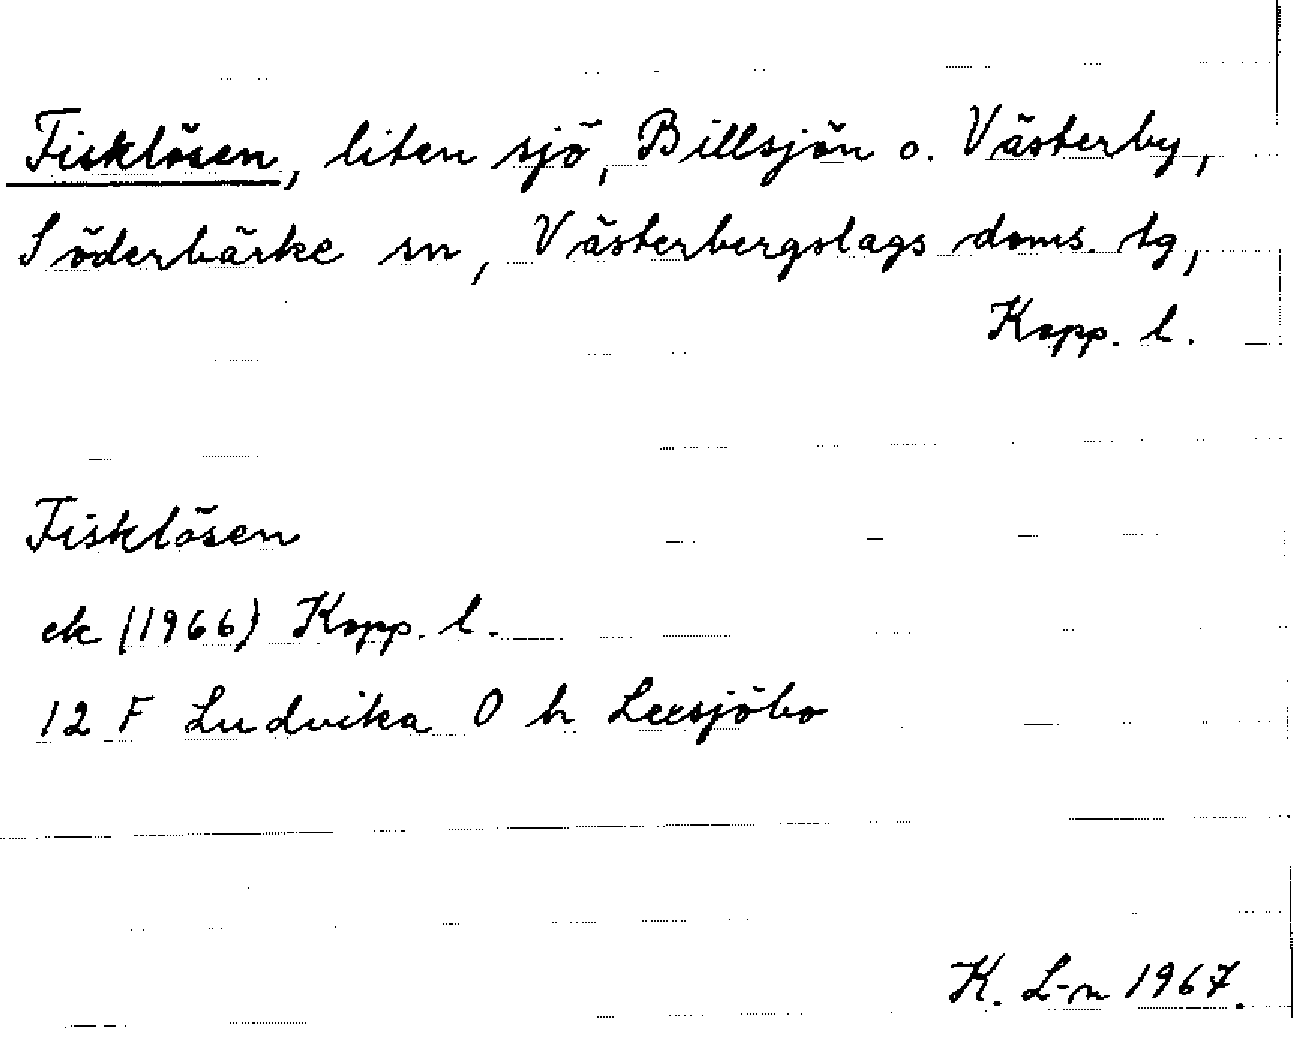 Fisklösen, liten sjö, Billsjön o. Västerby,
Söderbärke sn, Västerbergslags doms. tg,
Kopp. l.
Fisklösen
ek (1966) Kopp. l.
12 F Ludvika O h Leesjöbo
K. L-n 1967.